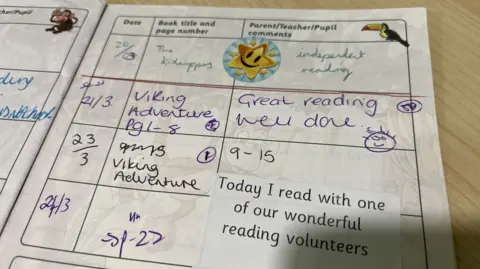 cher/Pupil
Date
Book title and page number
Parent/Teacher/Pupil comments
20/3
The kidnapping
independent reading
21/3
Viking Adventure Pg1-8
Great reading well done
23/3
Viking Adventure
9-15
24/3
Today I read with one
of our wonderful
reading volunteers